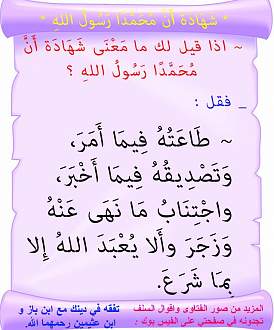 * شهادة أن محمدًا رسول اللهِ *
~ اذا قيل لك ما مَعْنَى شَهَادَة أَنَّ
مُحَمَّدًا رَسُولُ اللهِ ؟
_ فقل :
~ طَاعَتُهُ فِيمَا أَمَرَ،
وَتَصْدِيقُهُ فِيمَا أَخْبَرَ،
واجْتِنَابُ مَا نَهَى عَنْهُ
وَزَجَرَ وأَلا يُعْبَدَ اللهُ إِلا
بِمَا شَرَعَ.
المزيد من صور الفتاوى واقوال السلف
تجدونه في صفحتي على الفيس بوك :
تفقه في دينك مع ابن باز و
ابن عثيمين رحمهما الله.